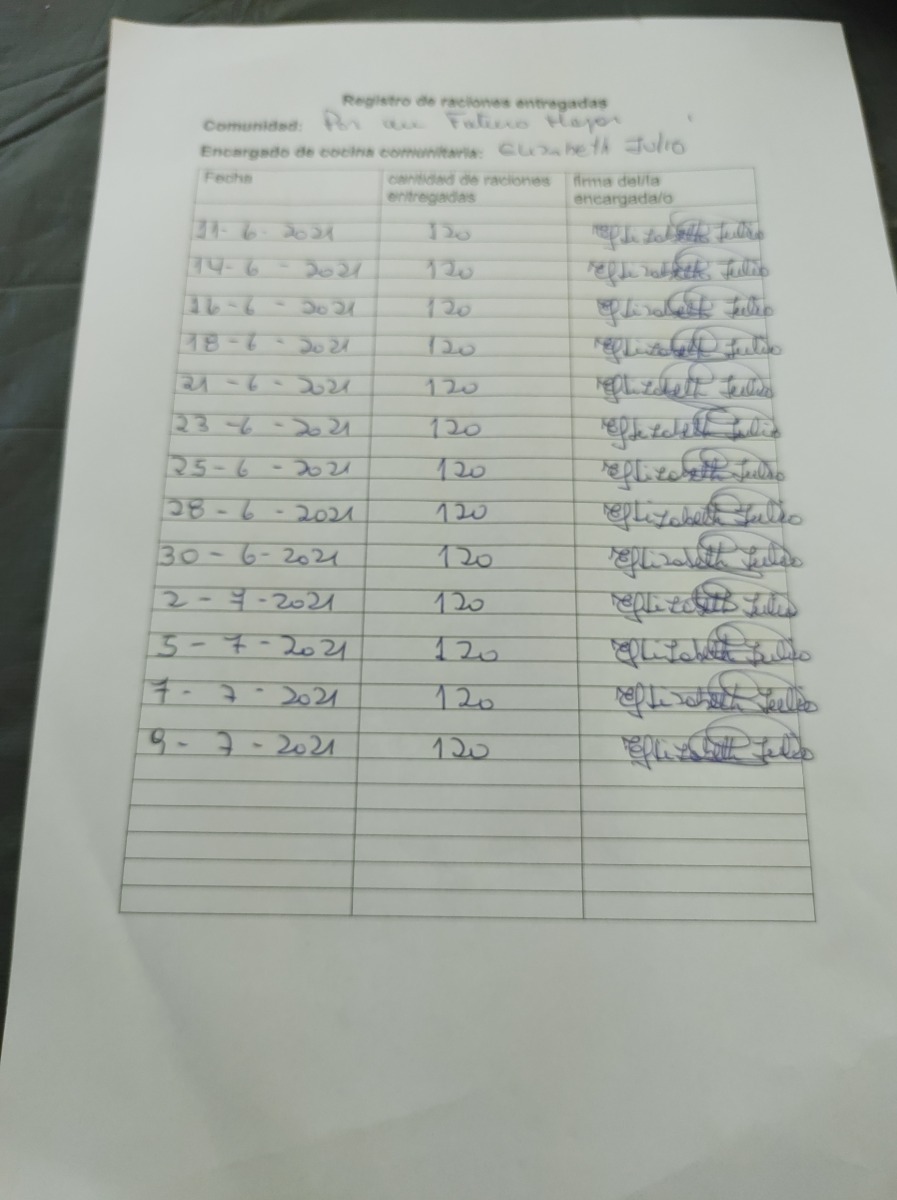 Registro de raciones entregadas
Comunidad: Por un Futuro Mejor
Encargado de cocina comunitaria: Elizabeth Julio
Fecha cantidad de raciones entregadas firma del/la encargada/o
11-6-2021 120 Elizabeth Julio
14-6-2021 120 Elizabeth Julio
16-6-2021 120 Elizabeth Julio
18-6-2021 120 Elizabeth Julio
21-6-2021 120 Elizabeth Julio
23-6-2021 120 Elizabeth Julio
25-6-2021 120 Elizabeth Julio
28-6-2021 120 Elizabeth Julio
30-6-2021 120 Elizabeth Julio
2-7-2021 120 Elizabeth Julio
5-7-2021 120 Elizabeth Julio
7-7-2021 120 Elizabeth Julio
9-7-2021 120 Elizabeth Julio